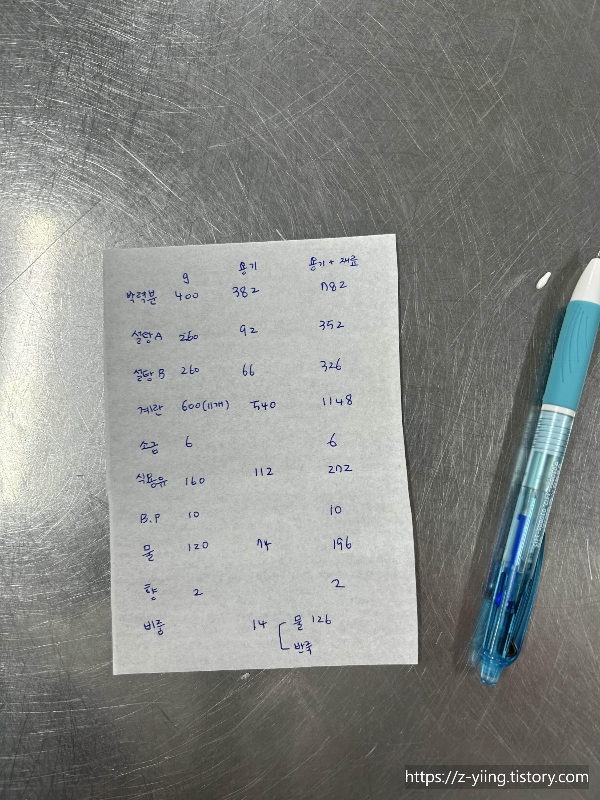 g 용기 용기 + 재료
박력분 400 382 782
설탕A 260 92 352
설탕B 260 66 326
계란 600(11개) 540 1148
소금 6 6
식용유 160 112 272
B.P 10 10
물 120 74 196
향 2 2
비중 14 물 126
반죽
https://z-yiing.tistory.com